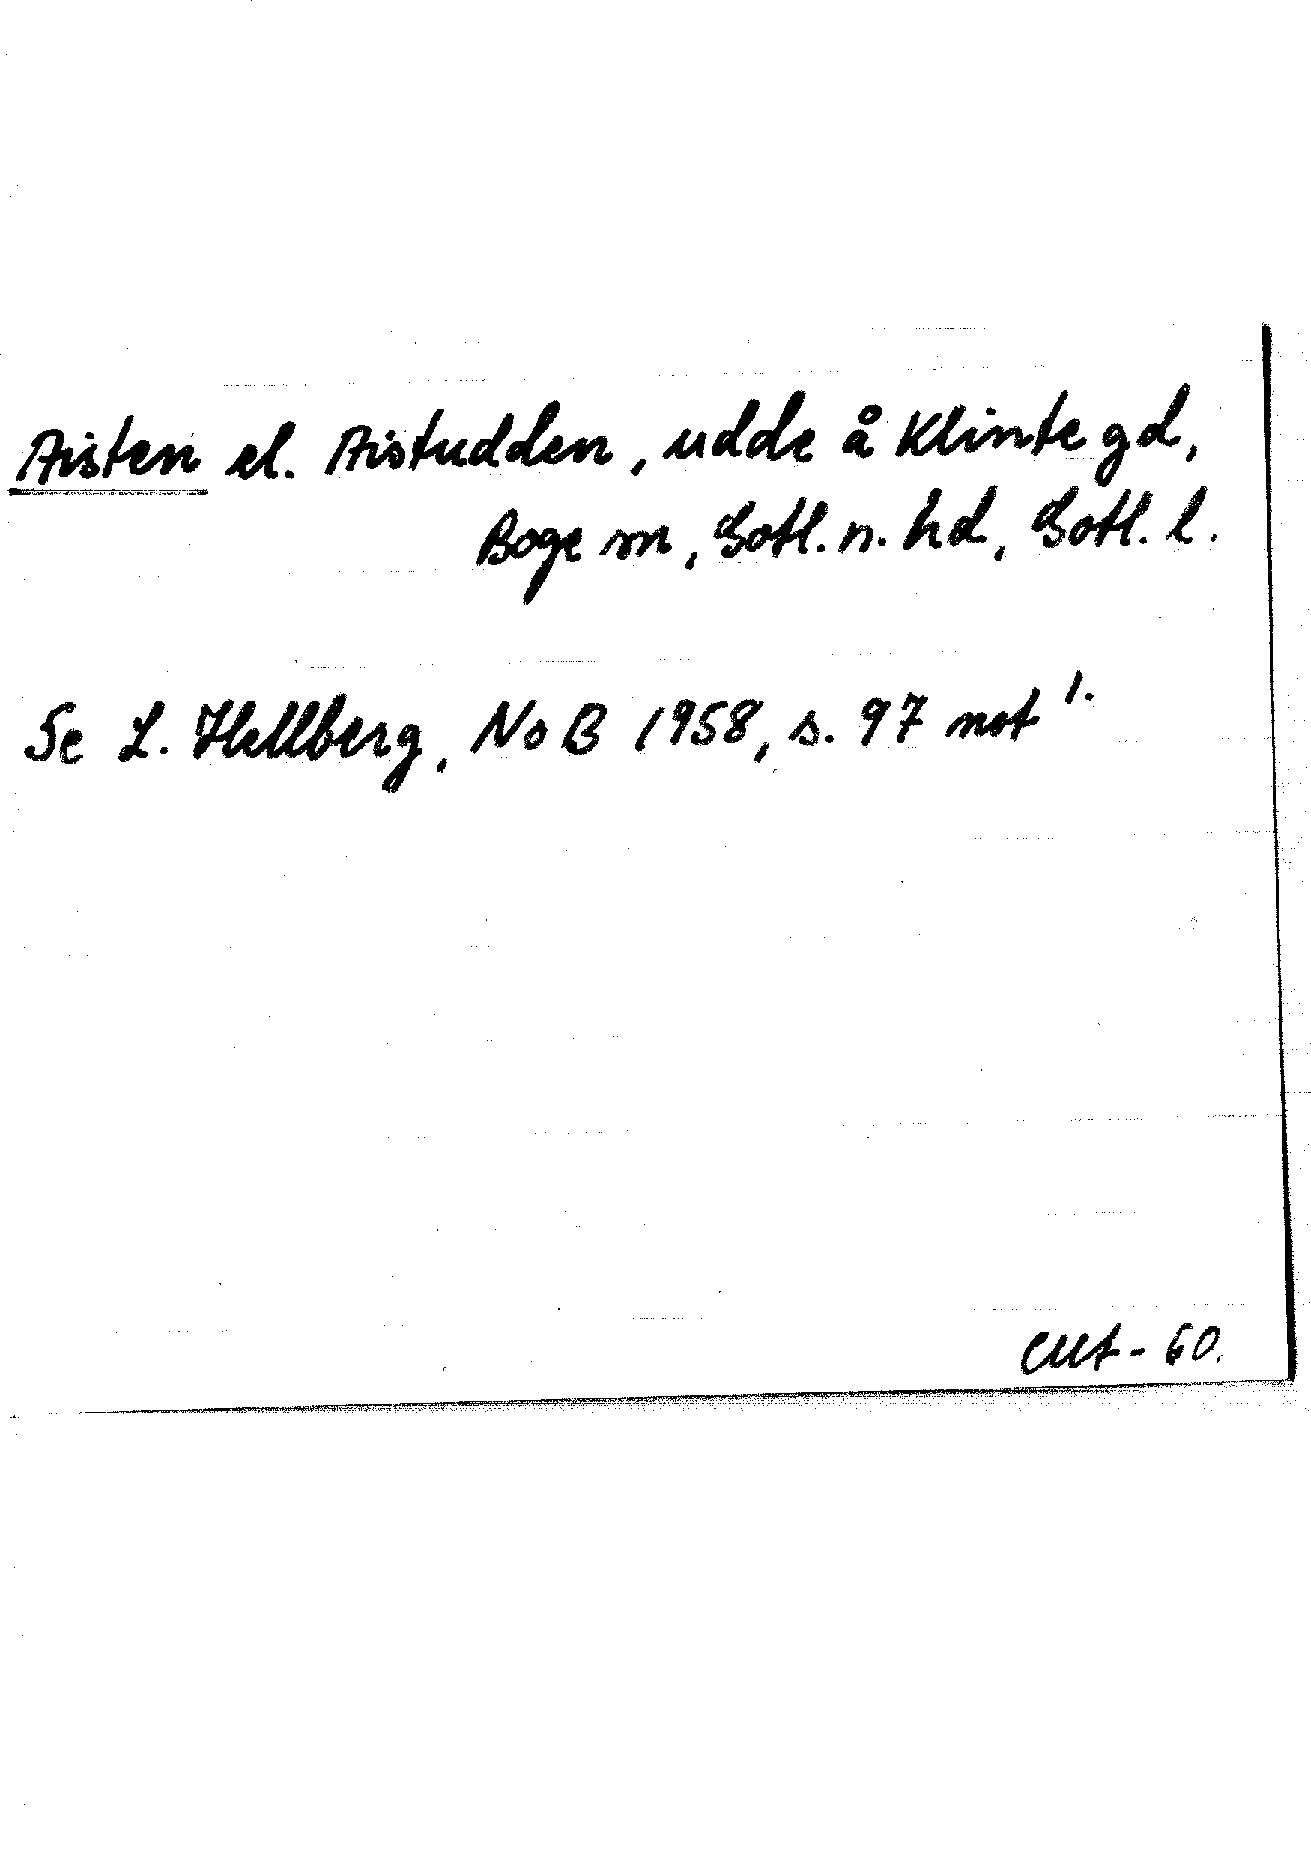 Aisten el. Aistudden, udde å Klinte gd,
Boge sn, Gotl. n. hd, Gotl. l.
Se L. Hellberg, NoB 1958, s. 97 not 1.
- 60.